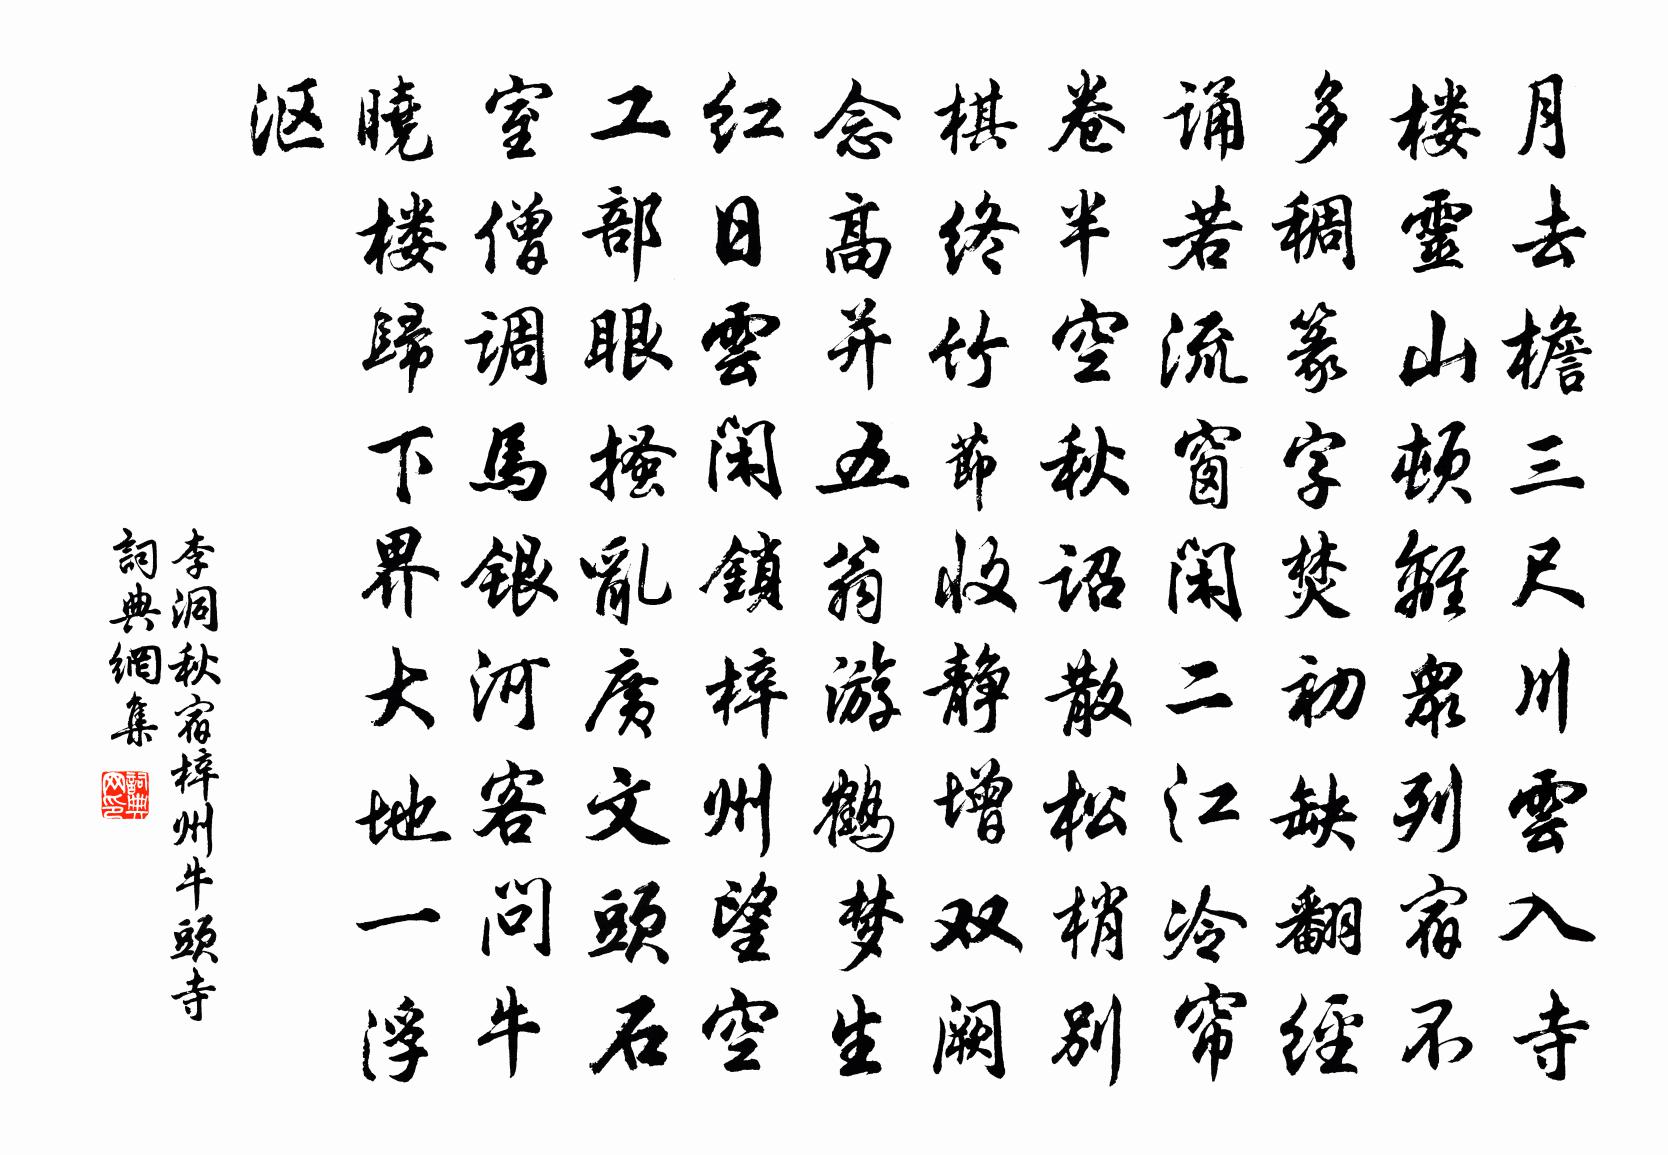 月去檐三尺川雲入寺
楼靈山頓離眾列宿不
多稠篆字焚初缺翻經
诵若流窗閑二江冷帘
卷半空秋诏散松梢别
棋终竹節收静增双阙
念高并五翁游鹤梦生
红日雲閑鎖梓州望空
工部眼搔亂廣文頭石
室僧调馬銀河客问牛
曉楼歸下界大地一浮
沤
李洞秋宿梓州牛頭寺
詞典網集
詞典网印